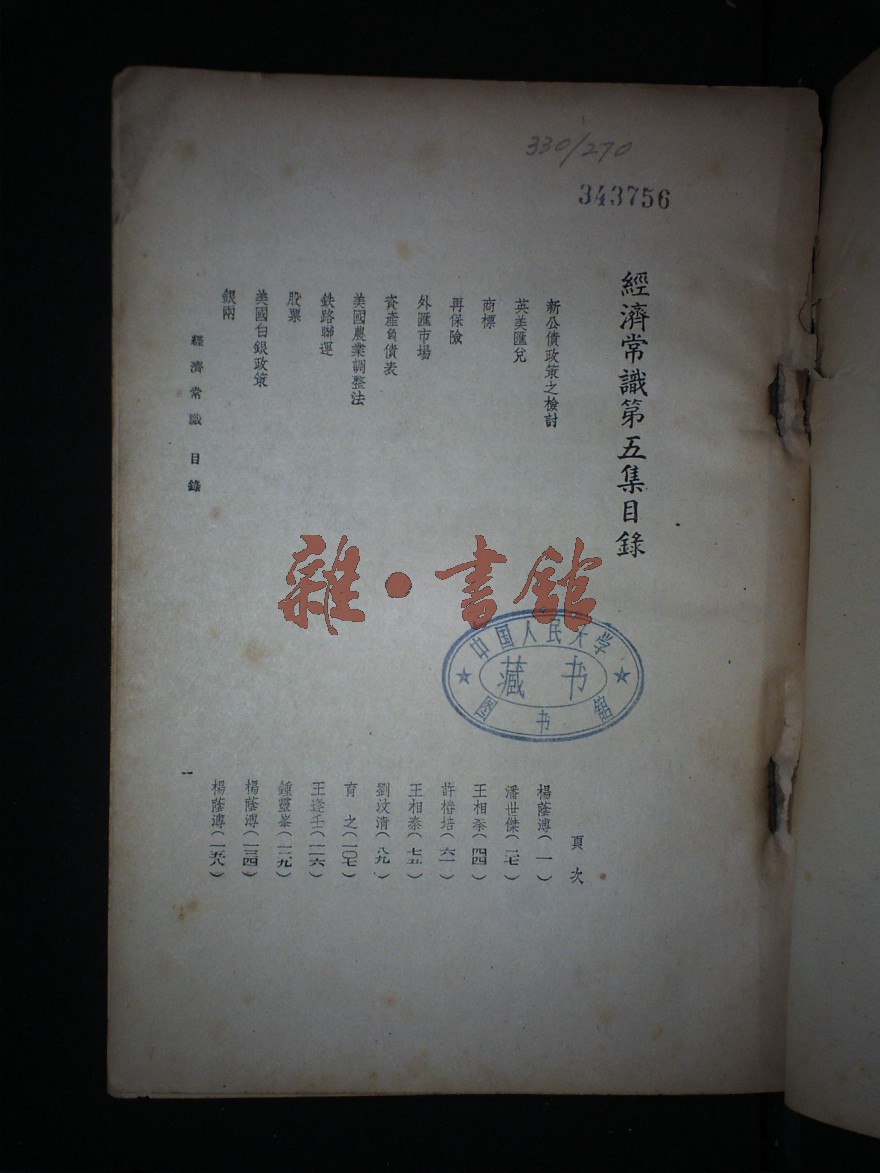 330/270
343756
經濟常識第五集目錄
頁次
新公債政策之檢討 楊蔭溥(一)
英美匯兌 潘世傑(二七)
商標 王相秦(四四)
再保險 許培(六一)
外匯市場 王相秦(七五)
資產負債表 劉汶清(八九)
美國農業調整法 育之(一〇七)
鉄路聯運 王逢壬(一一六)
股票 鍾靈峯(一二九)
美國白銀政策 楊蔭溥(一三四)
銀兩 楊蔭溥(一五八)
經濟常識 目錄
一
雜·書館
中国人民大学
藏书
图书舘